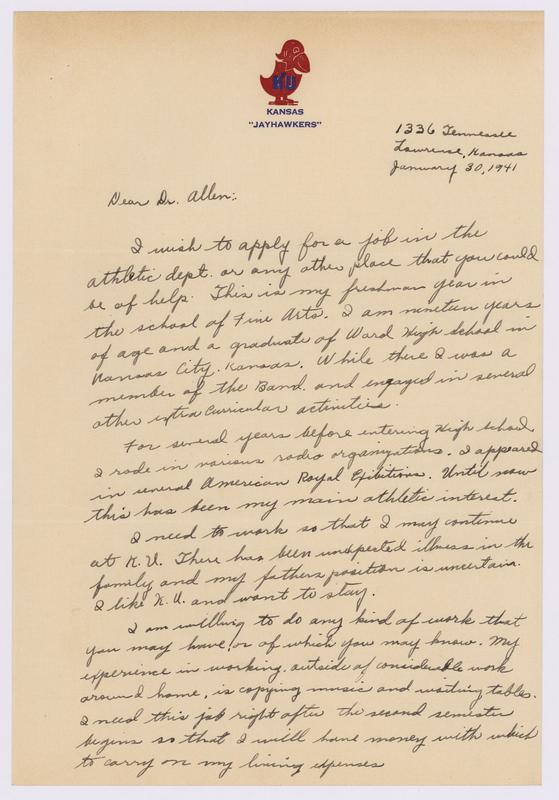 KU
KANSAS
"JAYHAWKERS"
1336 Tennessee
Lawrence, Kansas
January 30, 1941
Dear Dr. Allen:
I wish to apply for a job in the
athletic dept. or any other place that you could
be of help. This is my freshman year in
the school of Fine Arts. I am nineteen years
of age and a graduate of Ward High School in
Kansas City, Kansas. While there I was a
member of the Band and engaged in several
other extra curricular activities.
For several years before entering High School
I rode in various rodeo organizations. I appeared
in several American Royal Exibitions. Until now
this has been my main athletic interest.
I need to work so that I may continue
at K.U. There has been unexpected illness in the
family and my fathers position is uncertain.
I like K.U. and want to stay.
I am willing to do any kind of work that
you may have, or of which you may know. My
experience in working, outside of considerable work
around home, is copying music and waiting tables.
I need this job right after the second semester
begins so that I will have money with which
to carry on my living expenses